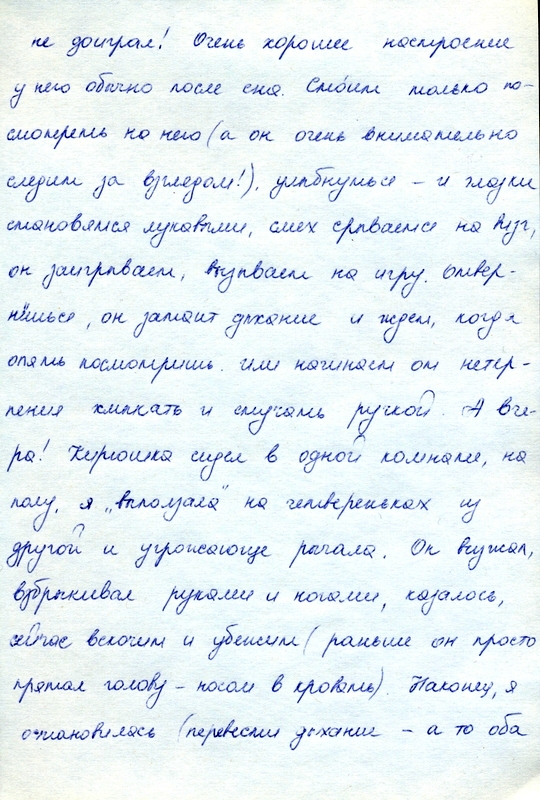 не доиграл! Очень хорошее настроение
у него обычно после сна. Сто́ит только по-
смотреть на него (а он очень внимательно
следит за взглядом!), улыбнуться – и глазки
становятся лукавыми, смех срывается на визг,
он заигрывает, вызывает на игру. Отвер-
нёшься, он затаит дыхание и ждет, когда
опять посмотришь. Или начинает от нетер-
пения хныкать и стучать ручкой. А вче-
ра! Кирюшка сидел в одной комнате, на
полу, я „выползала" на четвереньках из
другой и угрожающе рычала. Он визжал,
взбрыкивал руками и ногами, казалось,
сейчас вскочит и убежит (раньше он просто
прятал голову – носом в кровать). Наконец, я
остановилась (перевести дыхание – а то оба